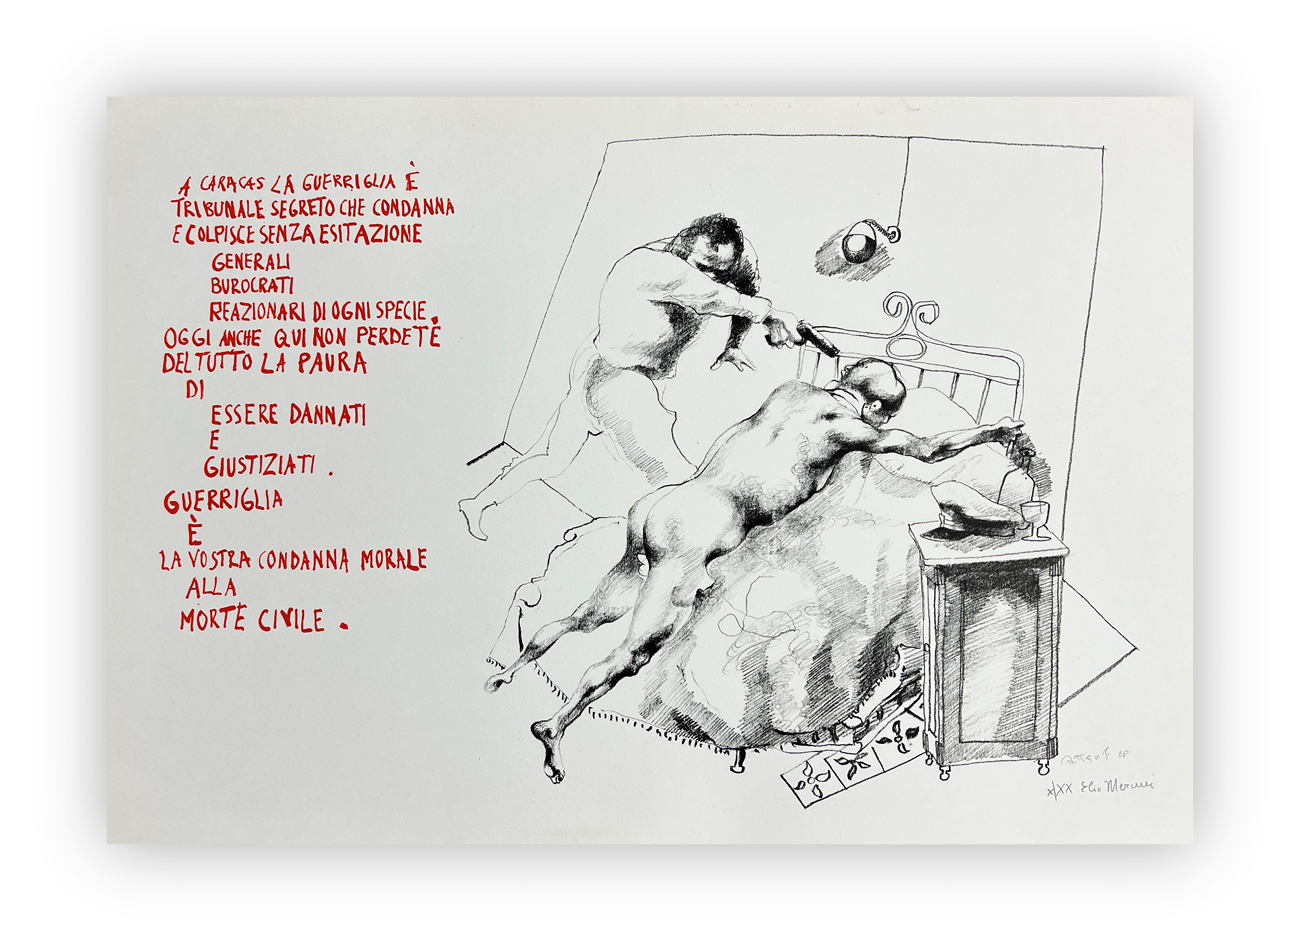 A CARACAS LA GUERRIGLIA È
TRIBUNALE SEGRETO CHE CONDANNA
E COLPISCE SENZA ESITAZIONE
GENERALI
BUROCRATI
REAZIONARI DI OGNI SPECIE.
OGGI ANCHE QUI NON PERDETE
DEL TUTTO LA PAURA
DI
ESSERE DANNATI
E
GIUSTIZIATI.
GUERRIGLIA
È
LA VOSTRA CONDANNA MORALE
ALLA
MORTE CIVILE.
68
X/XX Elio